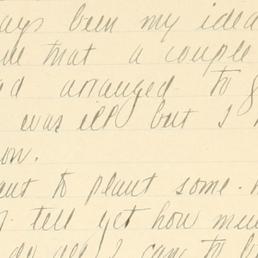 ays been my idea
that a couple
arranged to
was ill but I
on.
ant to plant some.
tell yet how mu
do all I can to